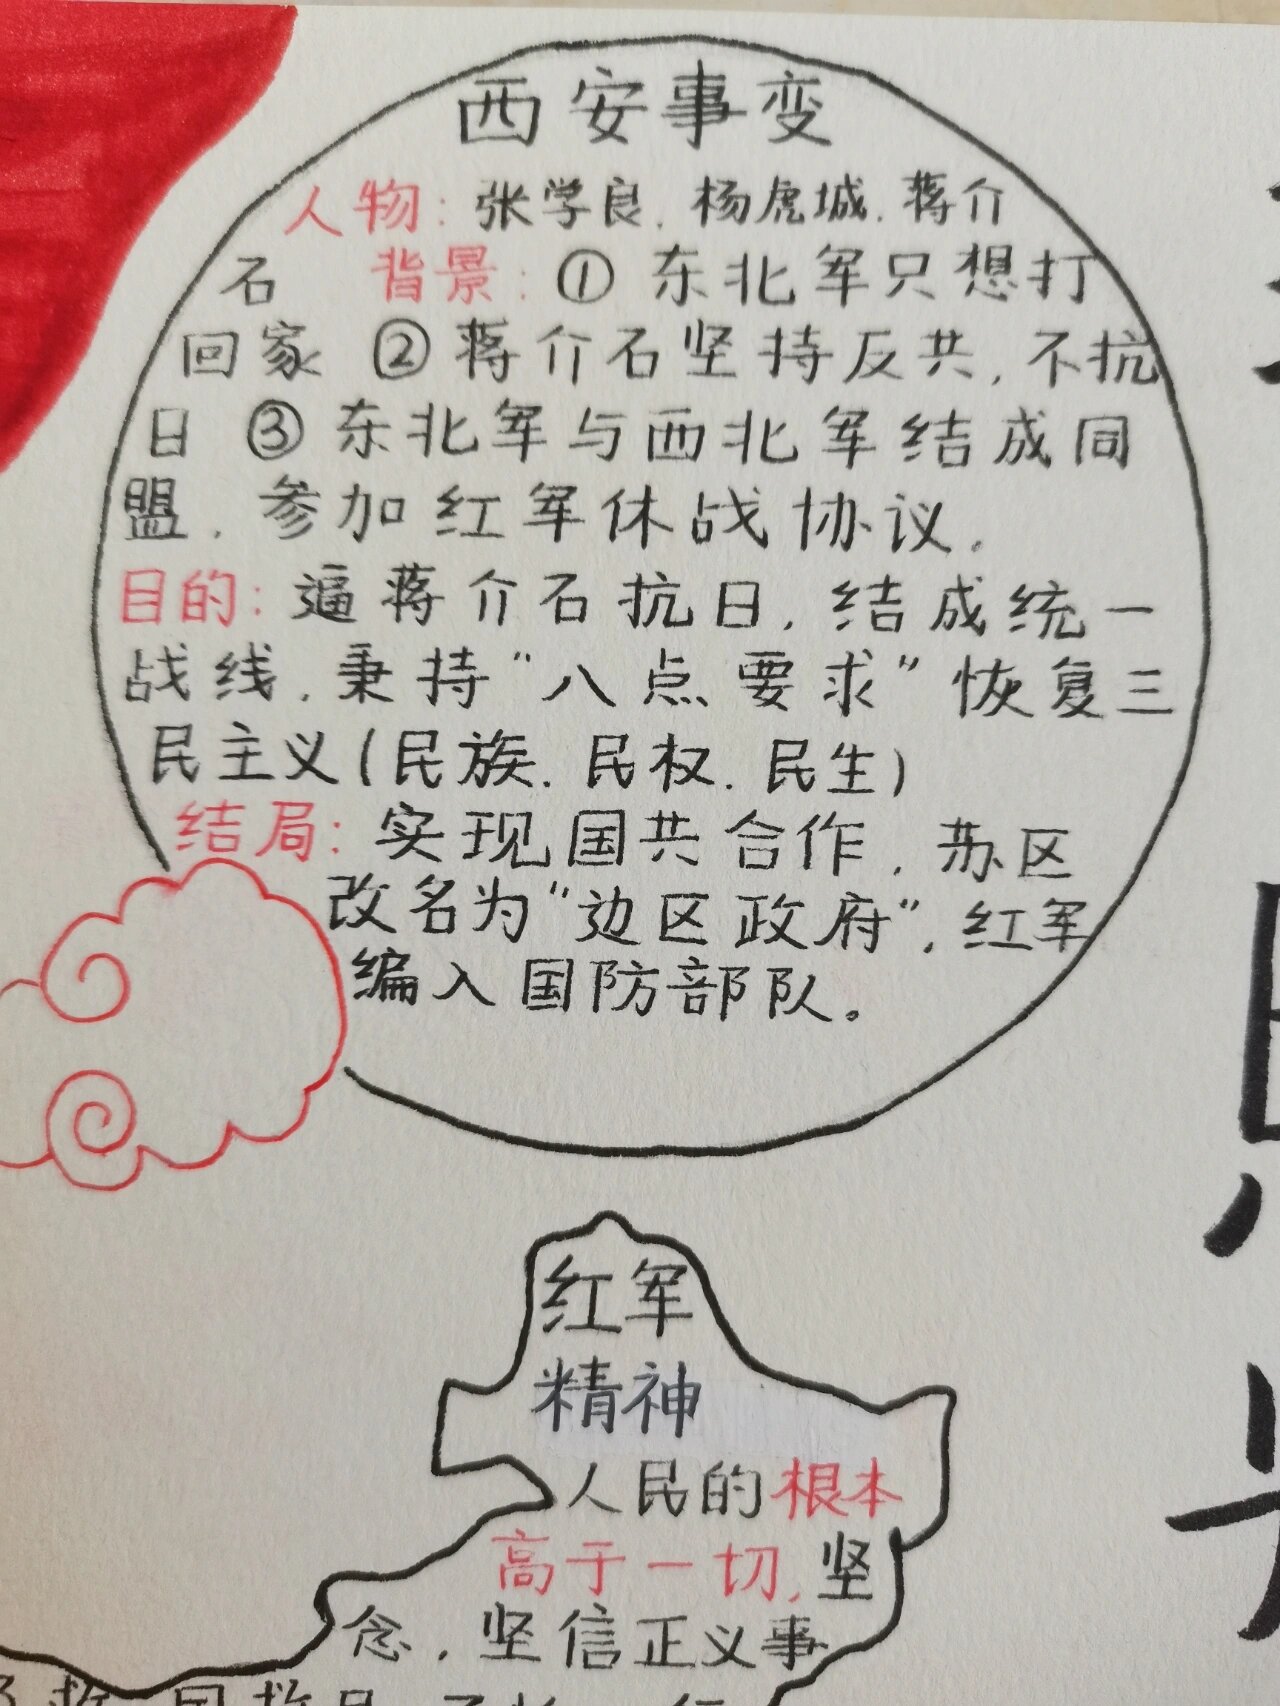 西安事变
人物：张学良、杨虎城、蒋介
石 背景：①东北军只想打
回家 ②蒋介石坚持反共，不抗
日 ③东北军与西北军结成同
盟，参加红军休战协议。
目的：逼蒋介石抗日，结成统一
战线，秉持“八点要求”恢复三
民主义(民族、民权、民生)
结局：实现国共合作，苏区
改名为“边区政府”，红军
编入国防部队。
红军
精神
人民的根本
高于一切，坚
念，坚信正义事